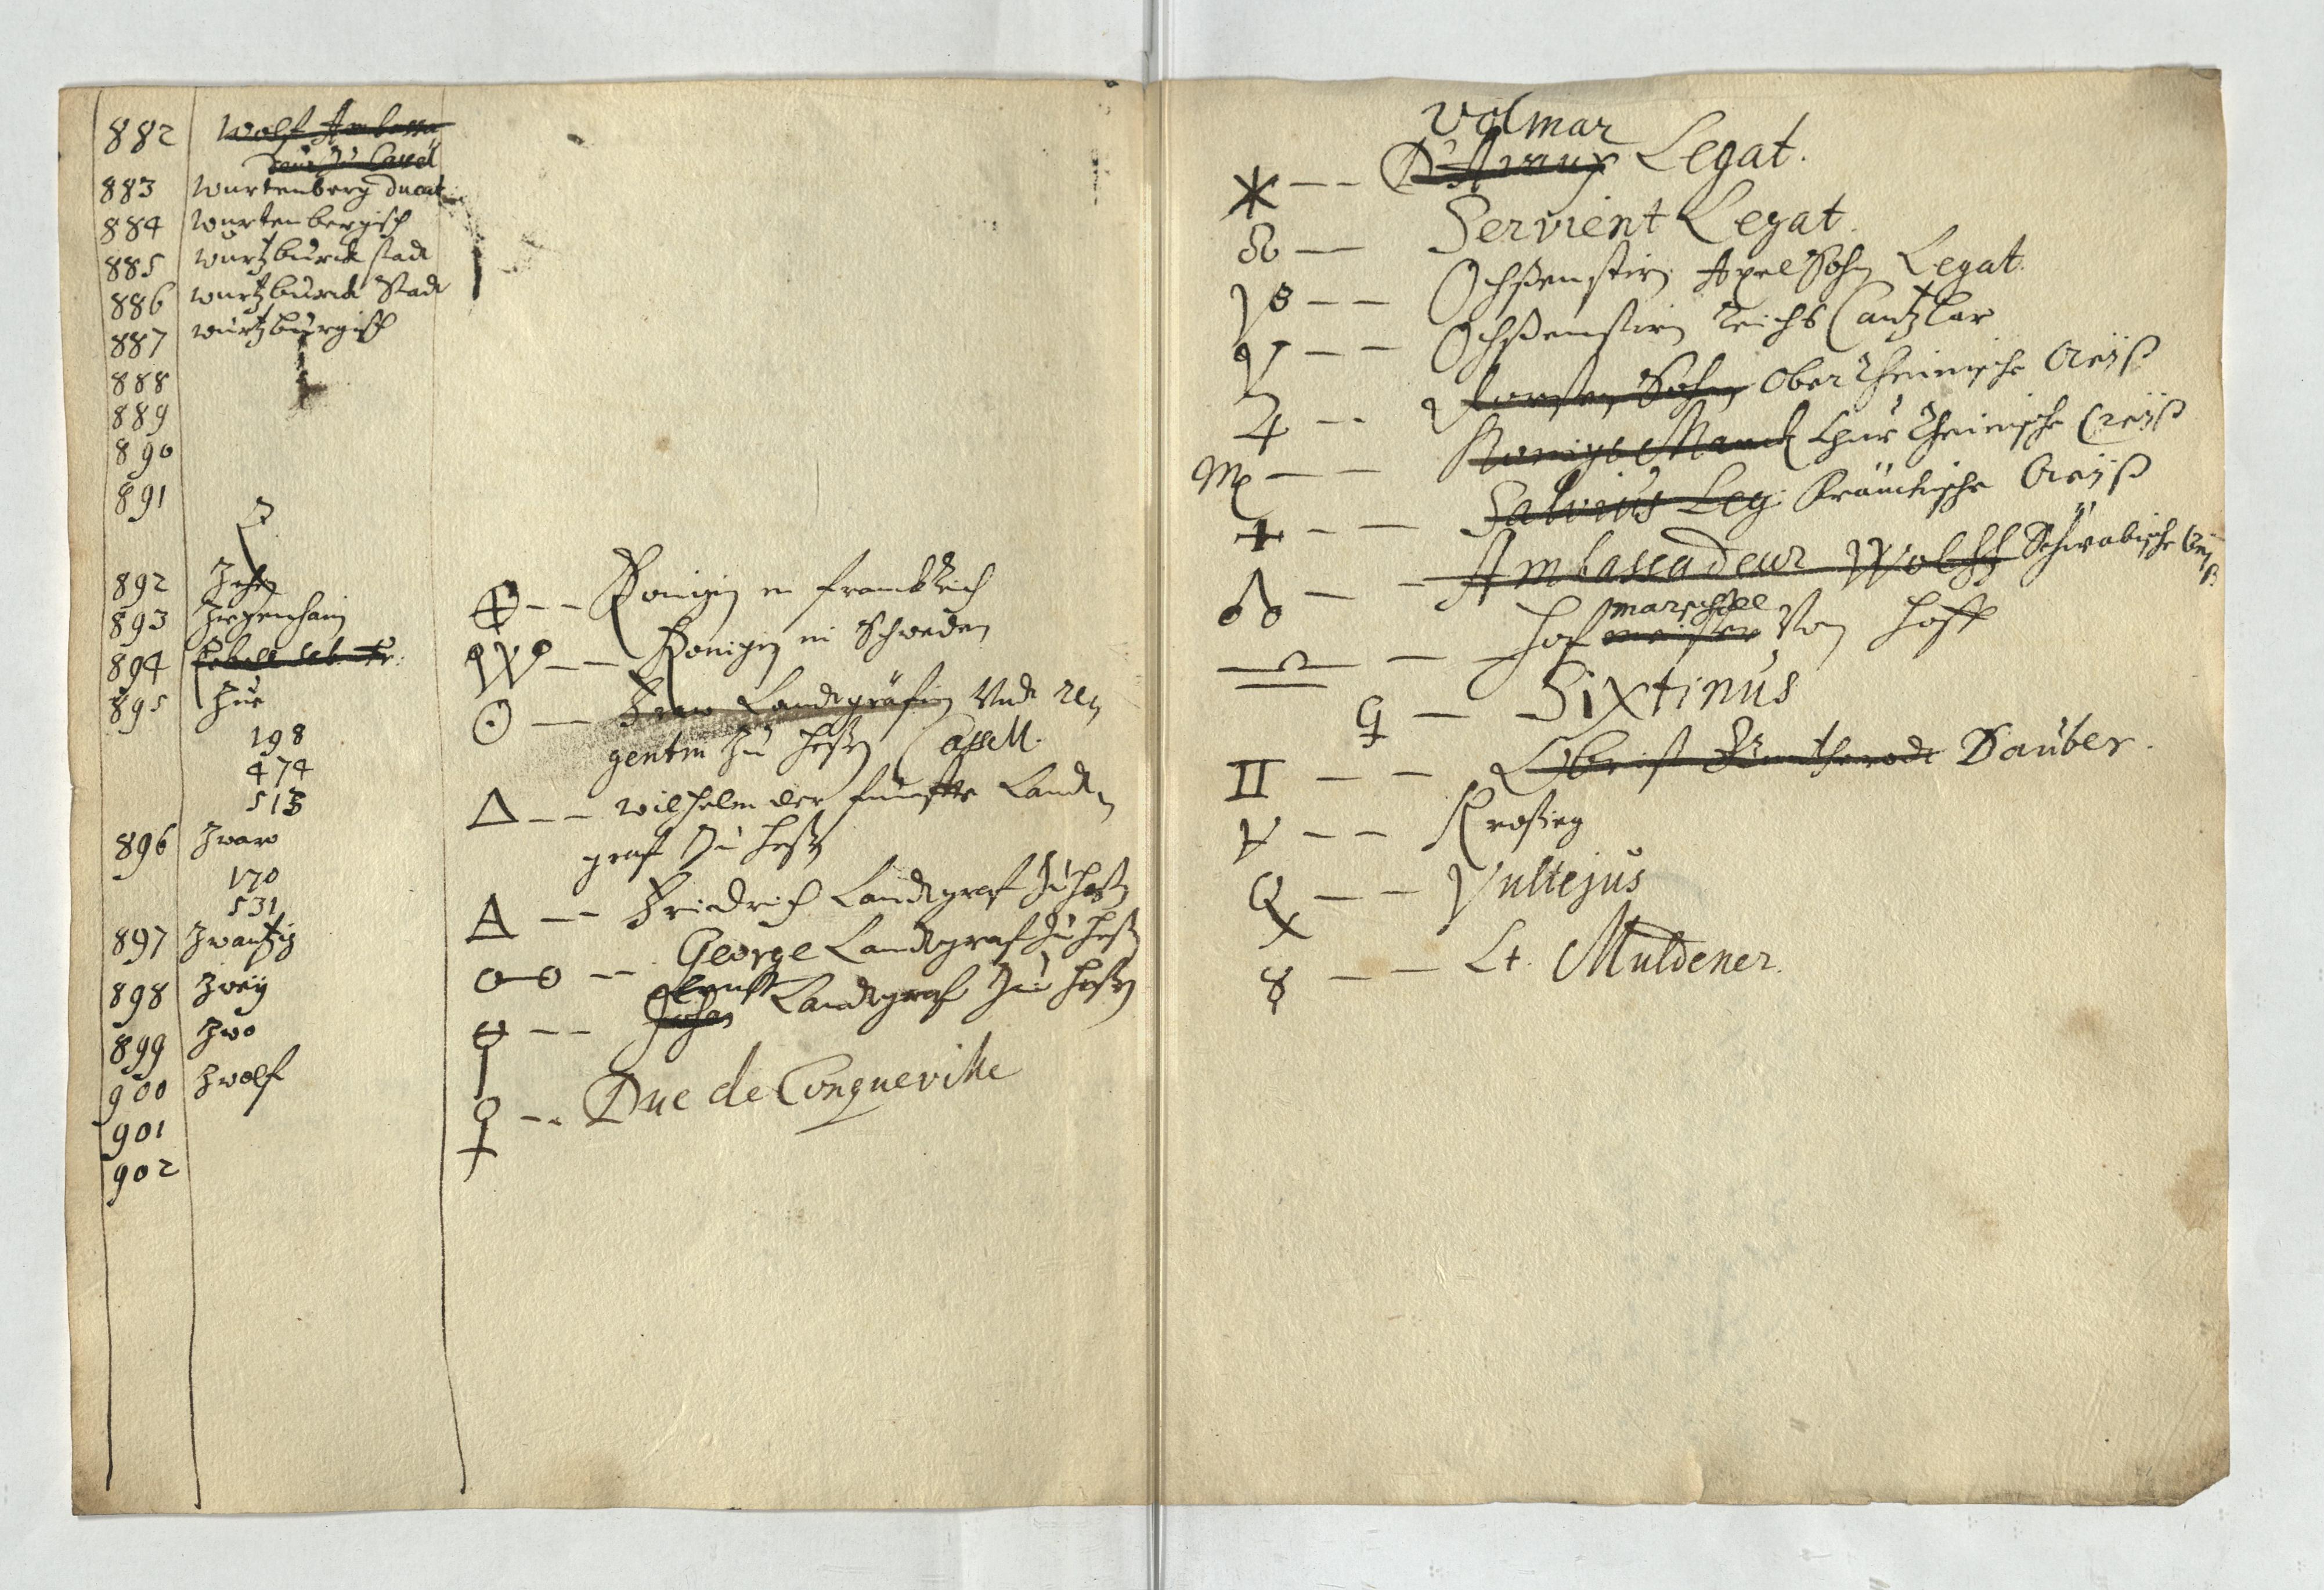 882 Wolf Ambassa
deur zu Cassel
883 Wurtenberg Ducat
884 Wurtenbergisch
885 Wurtzburck stadt
886 Wurtzburck Stadt
887 Wurtzburgisch
888
889
890
891
Z
892 Zehen
893 Ziegenhain
894
895 Zue
198
474
513
896 Zwar
170
531
897 Zwantzig
898 Zweÿ
899 Zwo
900 Zwolf
901
902
⊕ -- Konigin in franckreich
W -- Konigin in Schweden
☉ -- Fraw Landtgräfin Undt Re
gentin zu Heßen Cassell.
△ -- Wilhelm der funffte Landt
graf zu Heßen
A -- Friedrich Landtgraf zu Heßen
o-o -- George Landtgraf zu Heßen
Ernst
-- Johan Landtgraf zu Heßen
♀ -- Duc de Longueville
Volmar
* -- D'Avaux Legat.
-- Servient Legat.
-- Ochßenstirn Axel Sohn Legat.
-- Ochßenstirn Reichs Cantzlar
♃ -- Sohn Ober Rheinische Creÿß
♏ -- Chur Rheinische Creÿß
+ -- Salvius Leg. Fräncksche Creÿß
☊ -- Ambassadeur Wolff Schwäbische Creÿß
marschall
♎ -- Hofmeister Von Hoff
-- Sixtinus
♊ -- Obrist Gunterodt Dauber.
-- Kroßieg
-- Vultejus
8 -- Lt. Muldener.